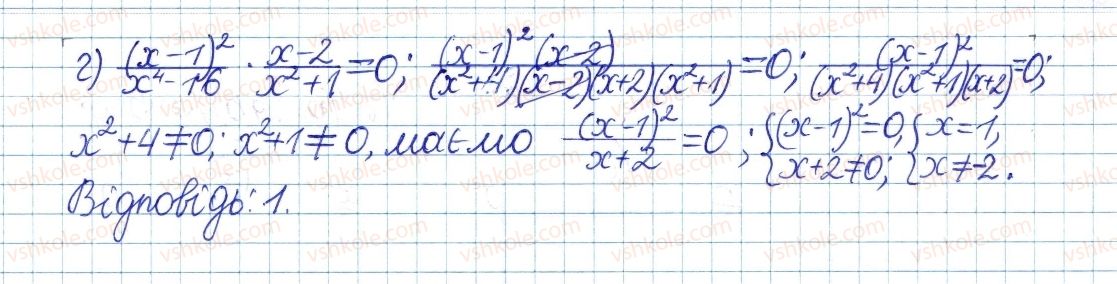 г) (x-1)²/(x⁴-16) · (x-2)/(x²+1) = 0; (x-1)²(x-2)/((x²+4)(x-2)(x+2)(x²+1)) = 0; (x-1)²/((x²+4)(x²+1)(x+2)) = 0;
x²+4≠0; x²+1≠0, маємо (x-1)²/(x+2) = 0; { (x-1)²=0, x+2≠0; { x=1, x≠-2.
Відповідь: 1.